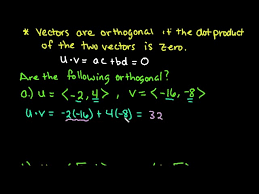 * Vectors are orthogonal if the dot product
of the two vectors is zero.
u·v = ac + bd = 0
Are the following orthogonal?
a.) u = <-2, 4>, v = <-16, -8>
u·v = -2(-16) + 4(-8) = 32